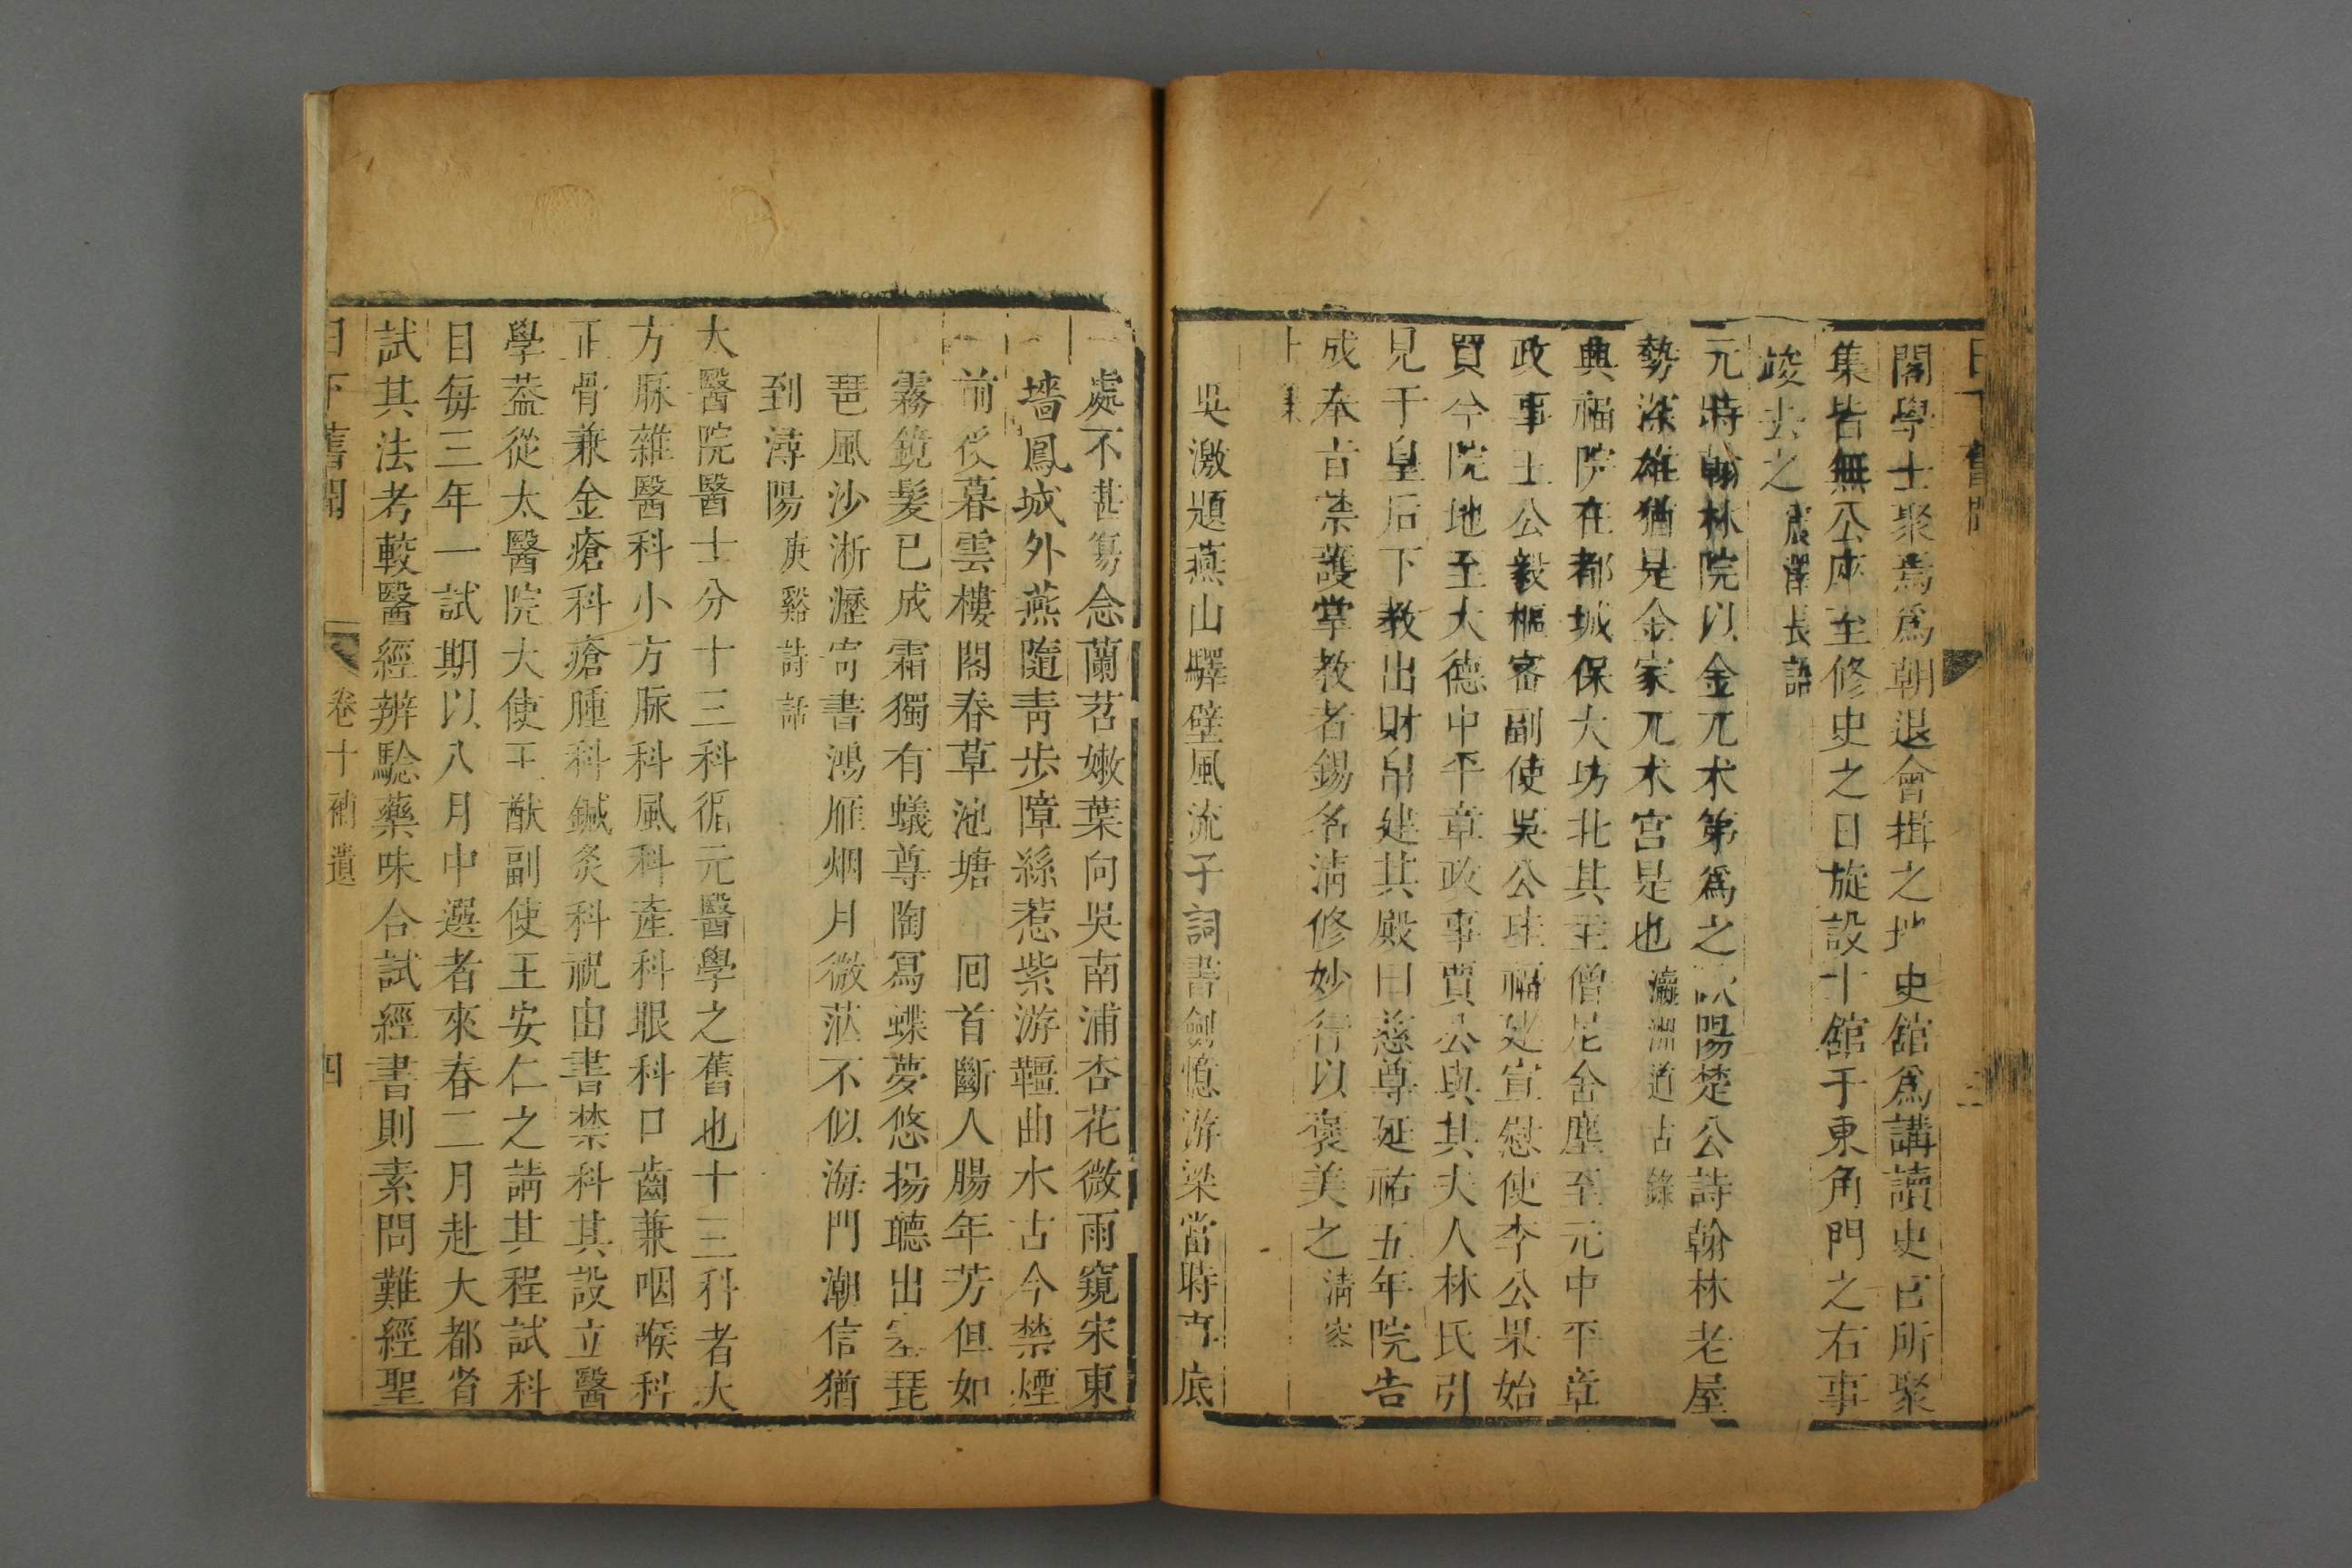 日下舊聞
三
閣學士聚焉爲朝退會揖之地史館爲講讀史官所聚
集皆無公座至修史之日旋設十館于東角門之右事
竣去之震澤長語
元時翰林院以金兀术第爲之歐陽楚公詩翰林老屋
勢深雄猶是金家兀术宮是也瀛洲道古錄
典福院在都城保大坊北其主僧尼舍塵至元中平章
政事王公毅樞密副使吳公珪福建宣慰使李公果始
買今院地至大德中平章政事賈公與其夫人林氏引
見于皇后下教出財帛建其殿曰慈尊延祐五年院告
成奉旨禁護掌教者錫名淸修妙行以褒美之淸容
士集
吳激題燕山驛壁風流子詞書劍憶游梁當時事底
處不甚傷念蘭苕嫩葉向吳南浦杏花微雨窺宋東
墻鳳城外燕隨靑步障絲惹紫游韁曲水古今禁煙
前後暮雲樓閣春草池塘 囘首斷人腸年芳但如
霧鏡髮已成霜獨有蟻尊陶寫蝶夢悠揚聽出塞琵
琶風沙淅瀝寄書鴻雁烟月微茫不似海門潮信猶
到潯陽庚谿詩話
太醫院醫士分十三科循元醫學之舊也十三科者大
方脉雜醫科小方脉科風科產科眼科口齒兼咽喉科
正骨兼金瘡科瘡腫科鍼灸科祝由書禁科其設立醫
學蓋從太醫院大使王猷副使王安仁之請其程試科
目每三年一試期以八月中選者來春二月赴大都省
試其法考較醫經辨驗藥味合試經書則素問難經聖
日下舊聞 卷十補遺 四